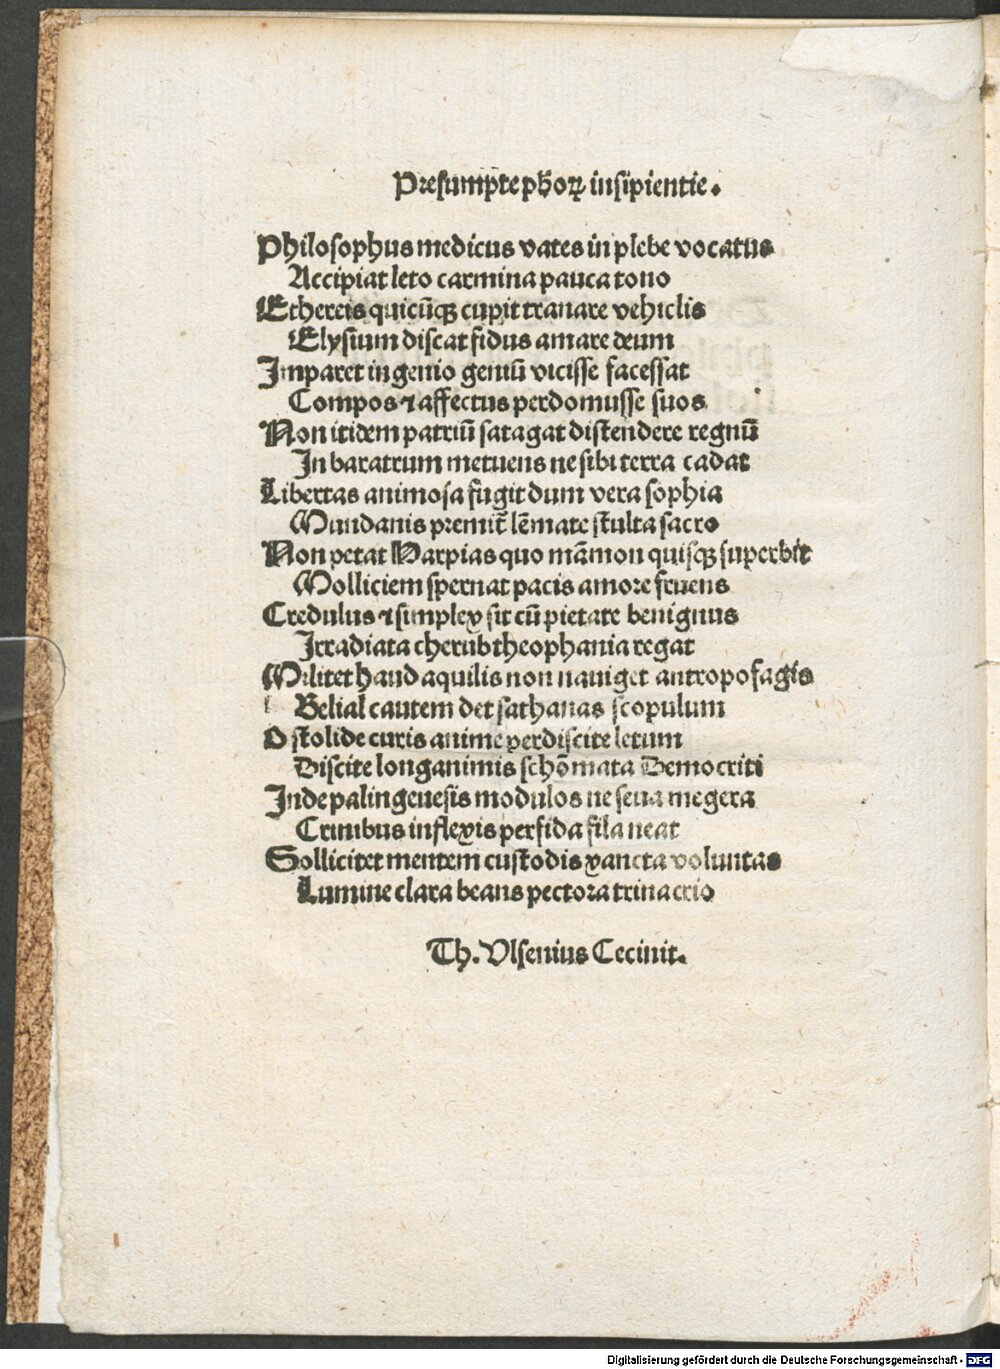 Presumpte phoꝝ insipientie.
Philosophus medicus vates in plebe vocatus
Accipiat leto carmina pauca tono
Ethereis quicūqꝫ cupit tranare vehiclis
Elysium discat fidus amare deum
Imparet ingenio geniū vicisse facessat
Compos ⁊ affectus perdomusse suos
Non itidem patriū satagat distendere regnū
In baratrum metuens ne sibi terra cadat
Libertas animosa fugit dum vera sophia
Mundanis premit̄ lēmate stulta sacro
Non petat Harpias quo māmon quisqꝫ superbit
Molliciem spernat pacis amore fruens
Credulus ⁊ simplex sit cū pietate benignus
Irradiata cherub theophania regat
Militet haud aquilis non nauiget antropofagis
Belial cautem det sathanas scopulum
O stolide curis anime perdiscite letum
Discite longanimis schōmata Democriti
Inde palingenesis modulos ne seua megera
Crinibus inflexis perfida fila neat
Sollicitet mentem custodis xancta voluntas
Lumine clara beans pectora trinacrio
Th. Vlsenius Cecinit.
Digitalisierung gefördert durch die Deutsche Forschungsgemeinschaft - DFG